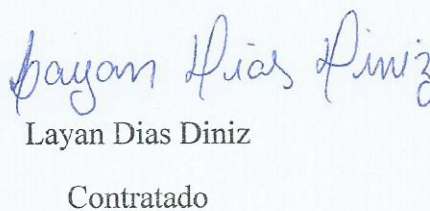 Layan Dias Diniz
Layan Dias Diniz
Contratado